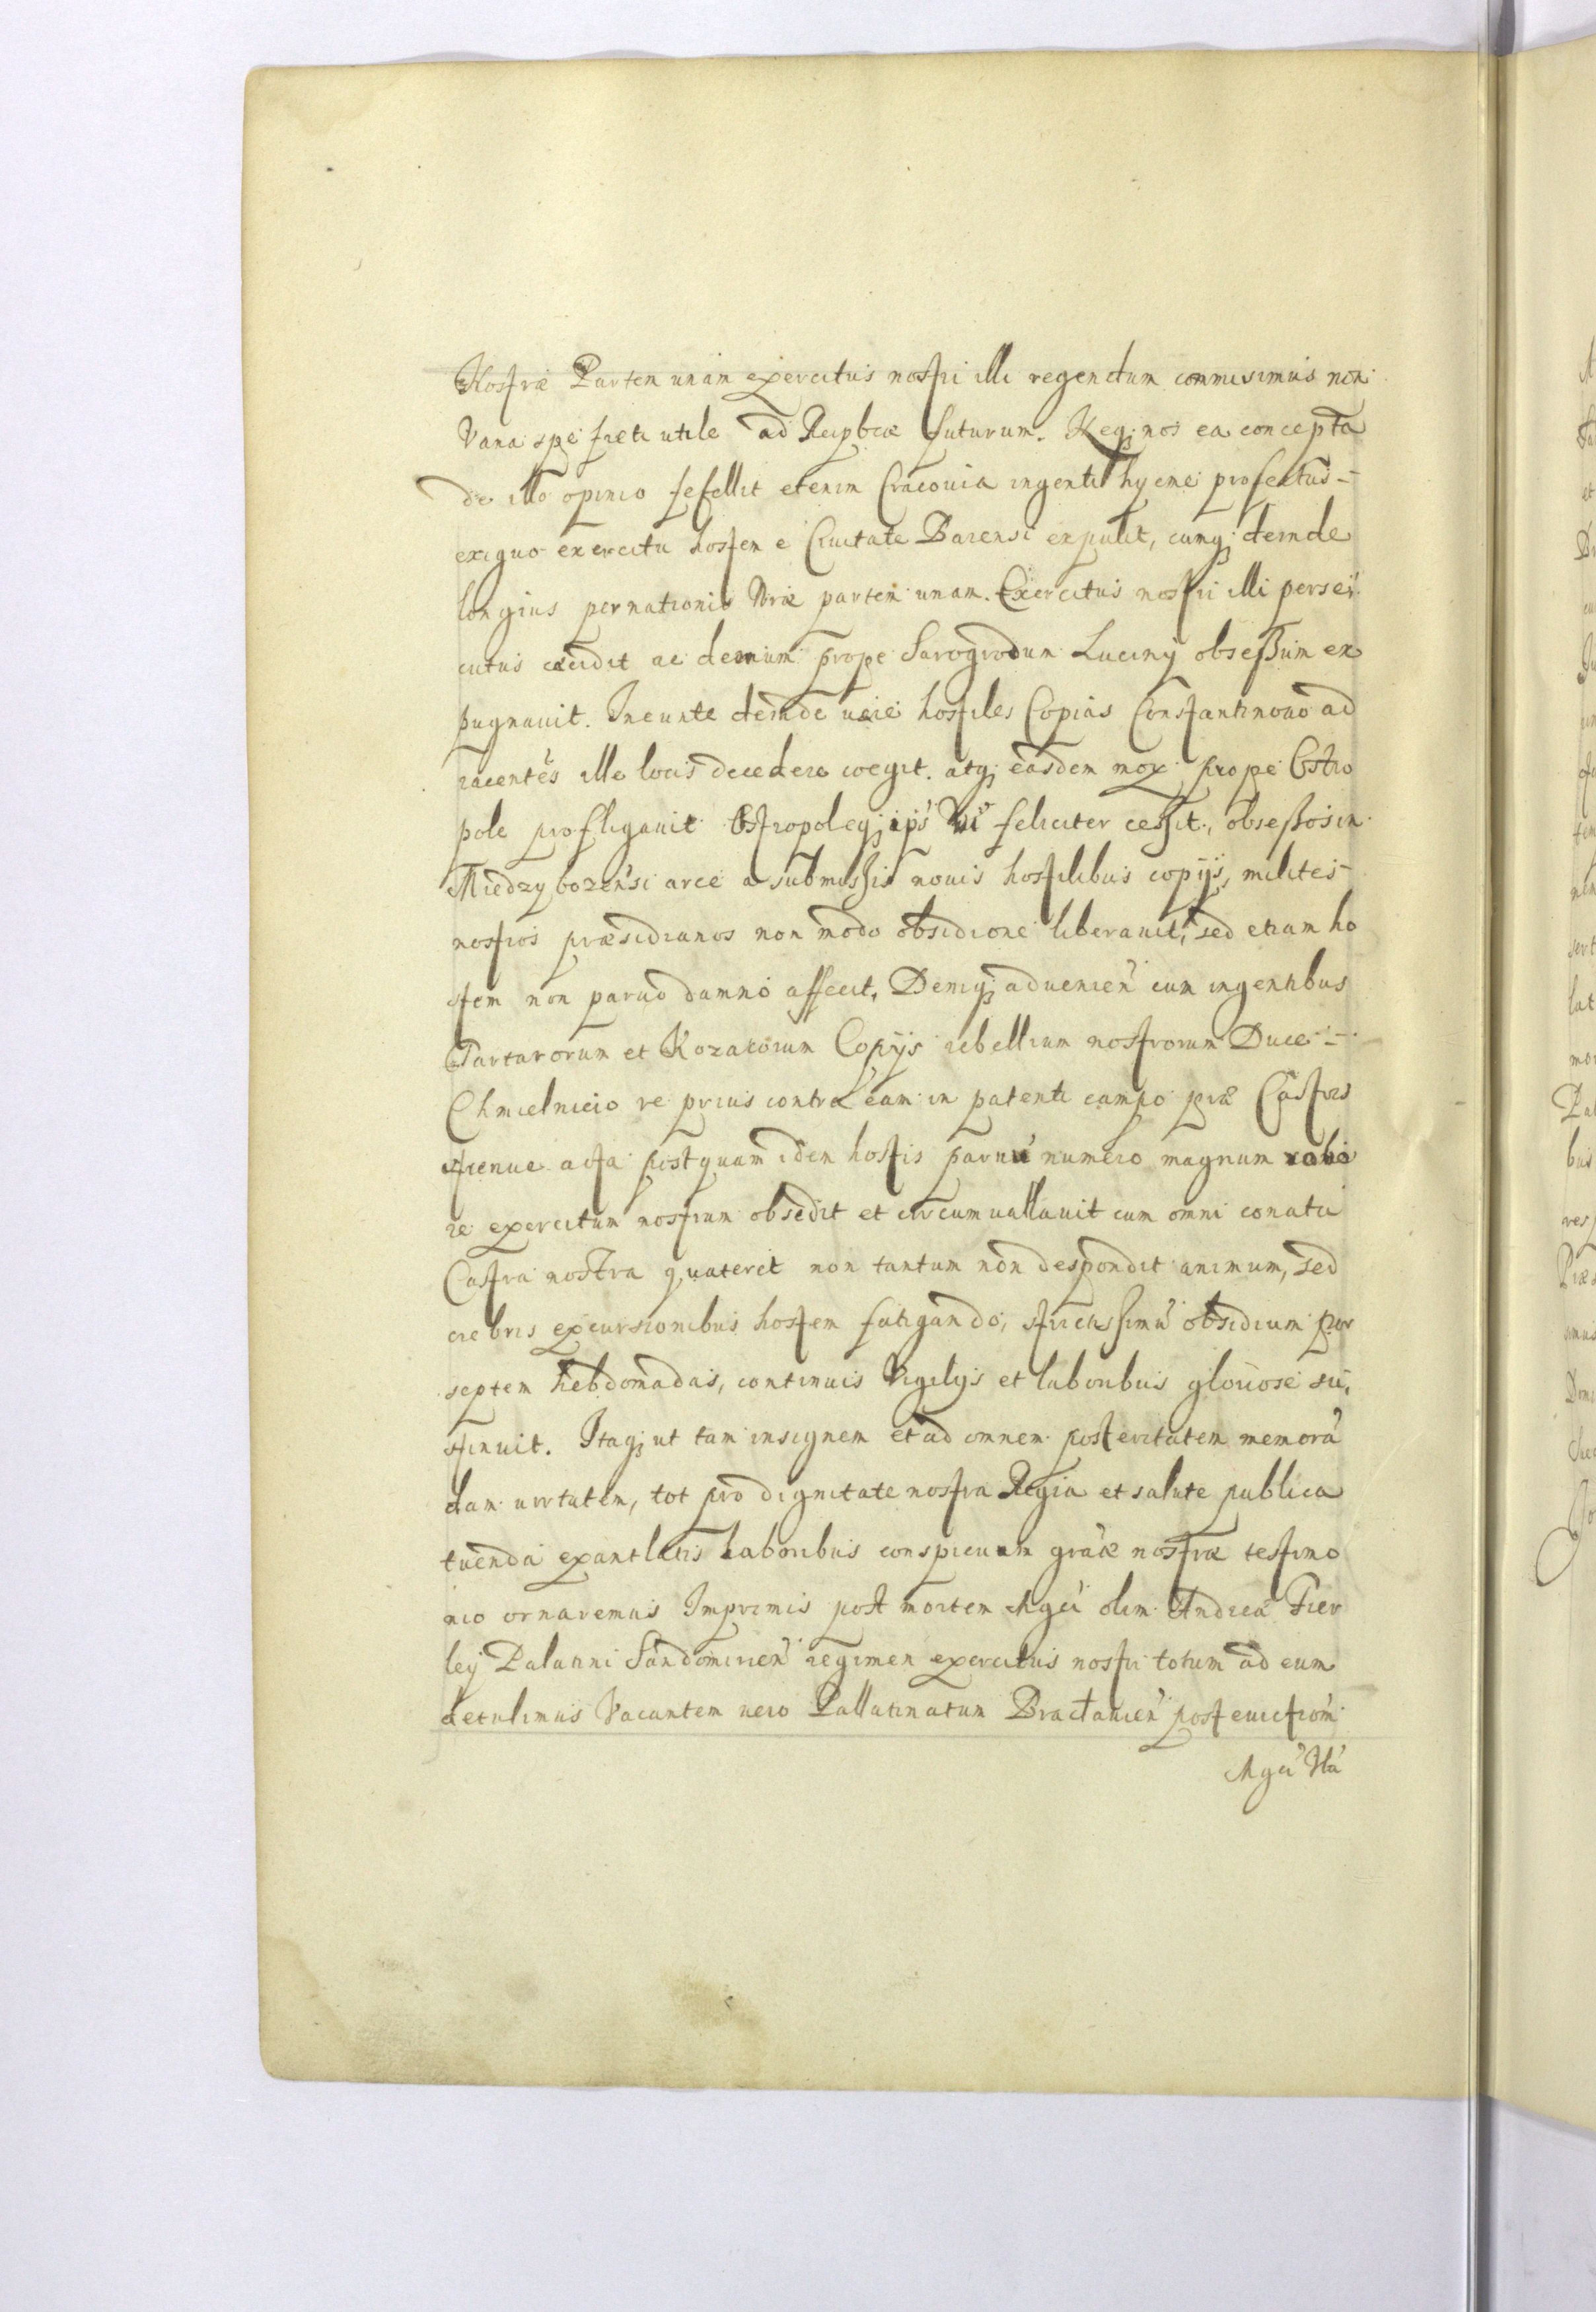 Nostræ Partem unam exercitus nostri illi regendum commisimus non
Vana spe freti utile ad Reipbcæ futurum. Neq; nos ea concepta
de illo opinio fefellit etenim Cracouia ingenti hyeme profectus
exiguo exercitu hostem e Ciuitate Barensi expulit, cumq; deinde
longius pernationis Nræ partem unam. Exercitus nostri illi perse
cutus cæcidit ac demum prope Sarogrodum Luciny obsessum ex
pugnauit. Ineunte deinde uere hostiles Copias Constantinouo ad
iacentes ille locis decedere coegit. atq; easdem mox prope Ostro
pole profligauit Ostropoleq; ips feliciter cessit, obsessos in
Miedzybozensi arce a submissis nouis hostilibus copijs, milites
nostros præsidianos non modo obsidione liberauit, sed etiam ho
stem non paruo damno affecit. Deniq; aduenien cum ingentibus
Tartarorum et Kozakorum Copijs rebellium nostrorum Duce
Chmielnicio re prius contra eam in patenti campo præ Castris
strenue acta postquam idem hostis paruu numero magnum robo
re exercitum nostrum obsedit et circumuallauit cum omni conatu
Castra nostra quateret non tantum non despondit animum, sed
crebris excursionibus hostem fatigando, strictissimu obsidium per
septem hebdomadas, continuis Vigilijs et laboribus gloriose su,
stinuit. Itaq; ut tam insignem et ad omnem posteritatem memora
dam uirtutem, tot pro dignitate nostra Regia et salute publica
tuenda exantlatis laboribus conspicuam graæ nostræ testimo
nio ornaremus Imprimis post mortem Mgci olim Andreæ Fier
ley Palatini Sandomirien regimen exercitus nostri totum ad eum
detulimus Vacantem uero Pallatinatum Braclauien post euictiom
Mgci Na